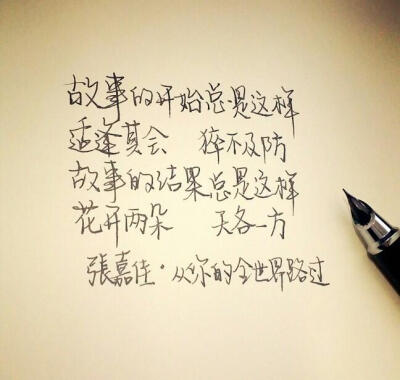 故事的开始总是这样
适逢其会 猝不及防
故事的结果总是这样
花开两朵 天各一方
張嘉佳·从你的全世界路过